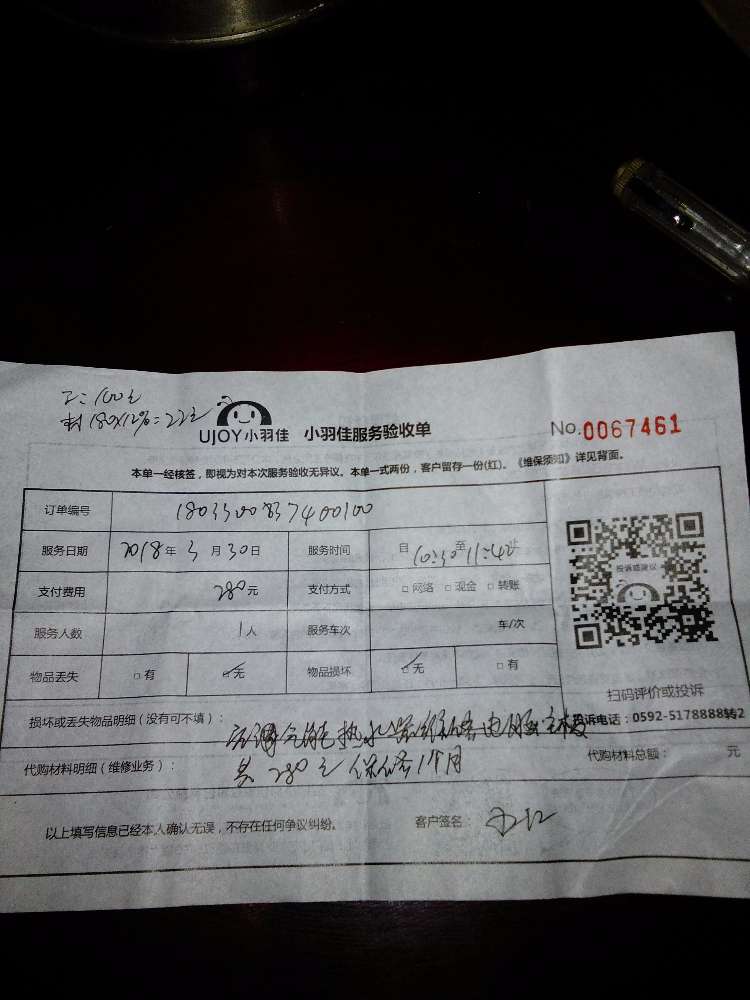 工：100元
材180X12%=22元
UJOY小羽佳 小羽佳服务验收单 No.0067461
本单一经核签，即视为对本次服务验收无异议。本单一式两份，客户留存一份(红)。《维保须知》详见背面。
订单编号
服务日期 2018年3月30日 服务时间 自10:30至11:42止
支付费用 280元 支付方式 □网络 □现金 □转账
服务人数 1人 服务车次 车/次
物品丢失 □有 ☑无 物品损坏 ☑无 □有
投诉或建议
扫码评价或投诉
投诉电话：0592-5178888转2
损坏或丢失物品明细（没有可不填）： 热水器维修电脑主板
代购材料明细（维修业务）： 共280元保修1个月 代购材料总额： 元
以上填写信息已经本人确认无误，不存在任何争议纠纷。 客户签名：